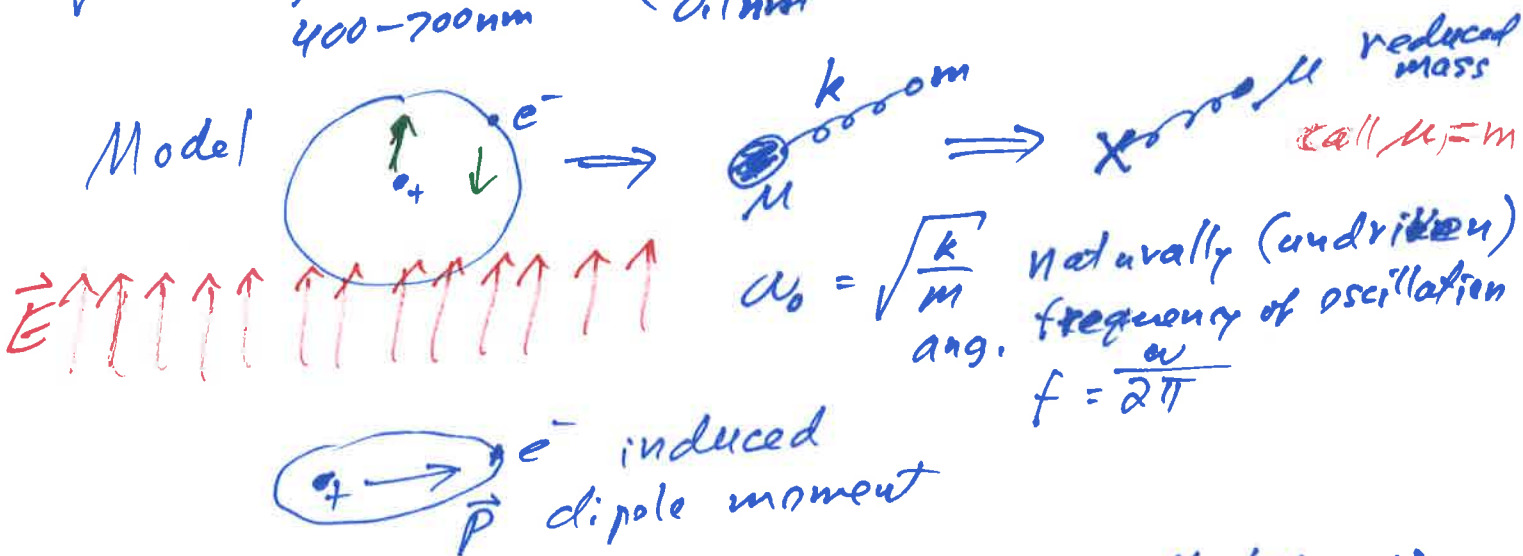 400-700nm 0.1nm
Model e⁻ k m μ reduced mass
+ M call μ = m
E⃗ ω₀ = √(k/m) naturally (undriven)
ang. frequency of oscillation
f = ω/2π
+ e⁻ induced
p⃗ dipole moment